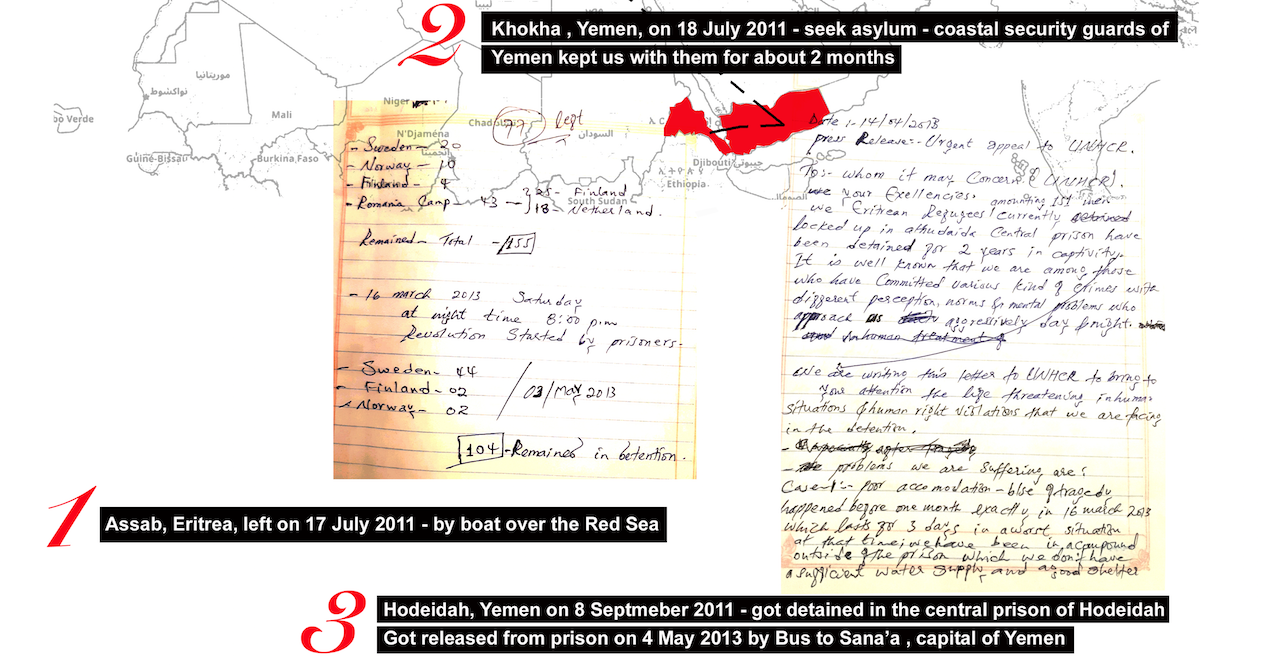 2
Khokha , Yemen, on 18 July 2011 - seek asylum - coastal security guards of
Yemen kept us with them for about 2 months
موريتانيا
نواكشوط
Mali
Niger
bo Verde
Guiné-Bissau
Burkina Faso
N'Djaména
Chad
السودان
South Sudan
Djibouti جيبوتي
Ethiopia
77 left
- Sweden - 20
- Norway - 10
- Finland - 4
- Romania Camp - 43 - } 25 - Finland
18 - Netherland.
Remained - Total - 155
- 16 march 2013 Saturday
at night time 8:00 p.m
Revolution Started by prisoners.
- Sweden - 44
- Finland - 02
- Norway - 02
03/May 2013
104 - Remained in detention.
Date :- 14/04/2013
press Release:- Urgent appeal to UNHCR.
To:- whom it may Concern (UNHCR).
Your Exellencies. amounting 151 men
we Eritrean Refugees currently detained
locked up in alhudaida Central prison have
been detained for 2 years in captivity.
It is well known that we are among those
who have Committed various kind of crimes with
different perception, norms & mental problems who
approach us aggressively day & night.
and Inhuman treatment of
We are writing this letter to UNHCR to bring to
your attention the life threatening inhuman
situations & human right violations that we are facing
in the detention.
- Especially after tragedy
- The problems we are suffering are:
Case-1:- poor accomodation - b/se of tragedy
happened before one month exactly in 16 march 2013
which lasts for 3 days in a worst situation
at that time; we have been in a compound
outside of the prison which we don't have
a sufficient water supply and a good shelter
1
Assab, Eritrea, left on 17 July 2011 - by boat over the Red Sea
3
Hodeidah, Yemen on 8 Septmeber 2011 - got detained in the central prison of Hodeidah
Got released from prison on 4 May 2013 by Bus to Sana'a , capital of Yemen